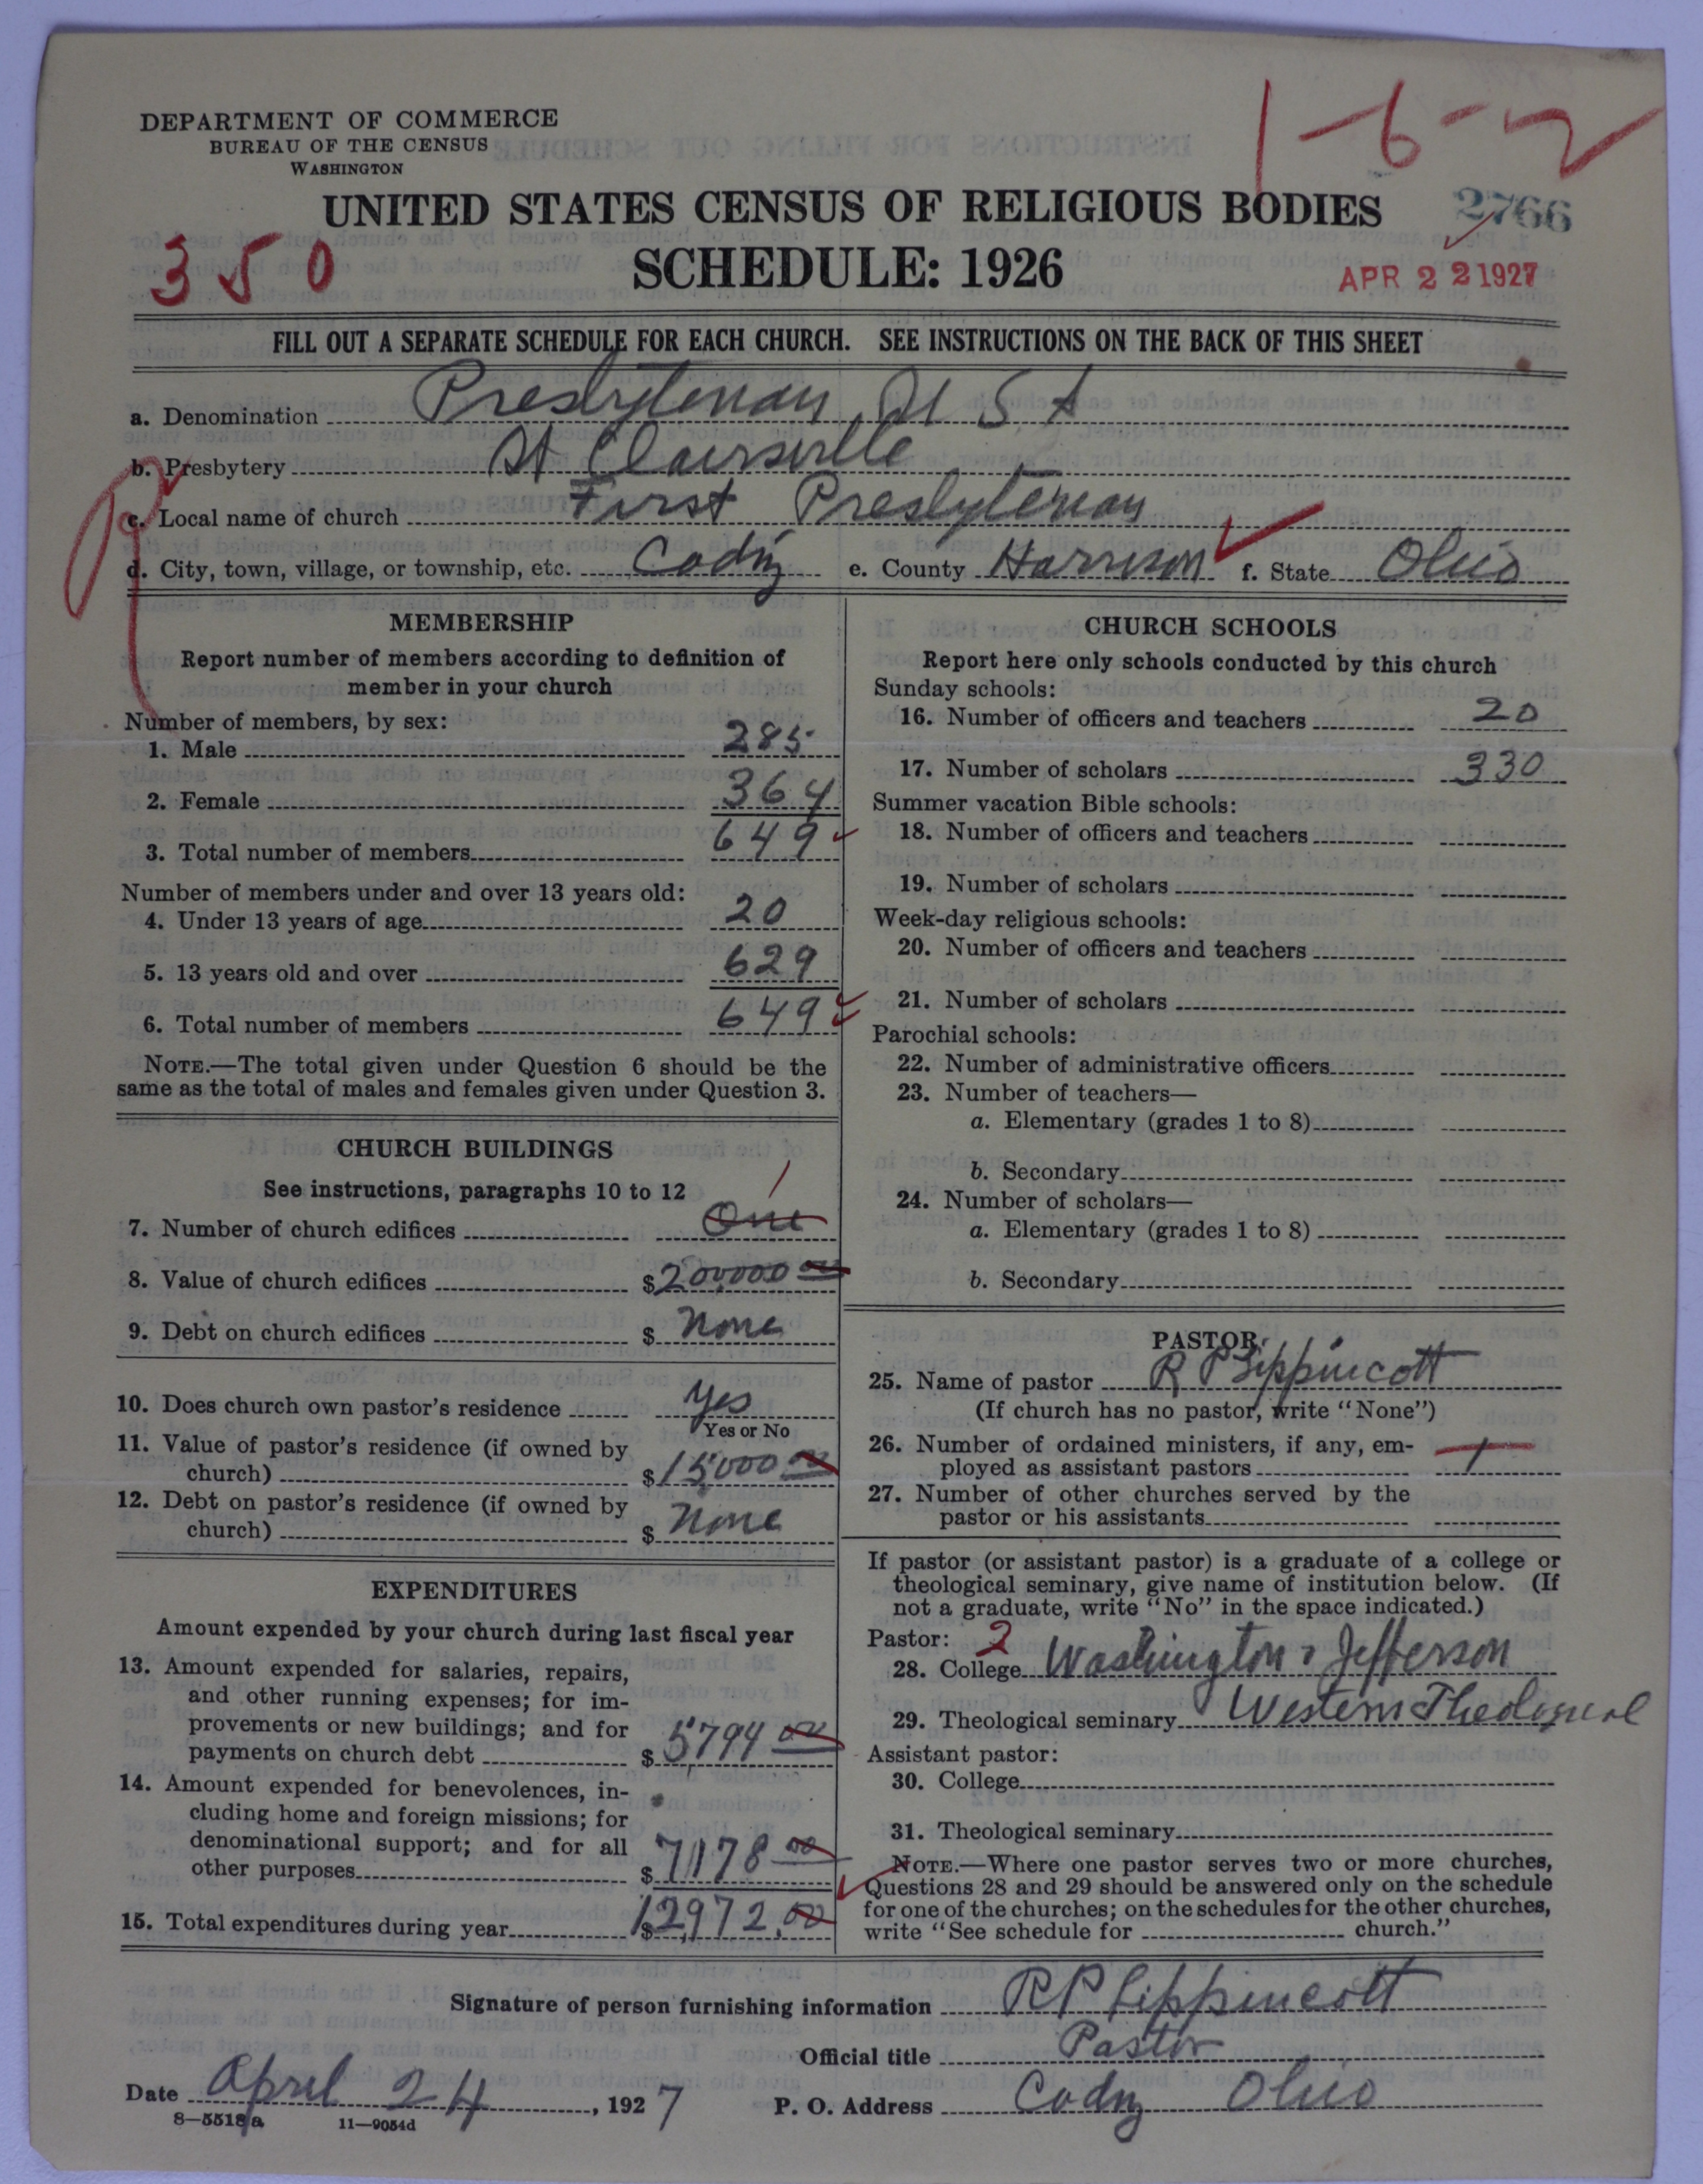 DEPARTMENT OF COMMERCE
BUREAU OF THE CENSUS
WASHINGTON
1-6-2
UNITED STATES CENSUS OF RELIGIOUS BODIES
2766
350
SCHEDULE: 1926
APR 22 1927
FILL OUT A SEPARATE SCHEDULE FOR EACH CHURCH. SEE INSTRUCTIONS ON THE BACK OF THIS SHEET
a. Denomination Presbyterian, U S A
b. Presbytery St Clairsville
c. Local name of church First Presbyterian
d. City, town, village, or township, etc. Cadiz e. County Harrison f. State Ohio
MEMBERSHIP
Report number of members according to definition of
member in your church
Number of members, by sex:
1. Male 285
2. Female 364
3. Total number of members 649
Number of members under and over 13 years old:
4. Under 13 years of age 20
5. 13 years old and over 629
6. Total number of members 649
NOTE.—The total given under Question 6 should be the
same as the total of males and females given under Question 3.
CHURCH BUILDINGS
See instructions, paragraphs 10 to 12
1
7. Number of church edifices One
8. Value of church edifices $200,000 00
9. Debt on church edifices $ None
10. Does church own pastor's residence Yes
Yes or No
11. Value of pastor's residence (if owned by
church) $15,000 00
12. Debt on pastor's residence (if owned by
church) $ None
EXPENDITURES
Amount expended by your church during last fiscal year
13. Amount expended for salaries, repairs,
and other running expenses; for im-
provements or new buildings; and for
payments on church debt $5794 00
14. Amount expended for benevolences, in-
cluding home and foreign missions; for
denominational support; and for all
other purposes $7178 00
15. Total expenditures during year $12,972.00
CHURCH SCHOOLS
Report here only schools conducted by this church
Sunday schools:
16. Number of officers and teachers 20
17. Number of scholars 330
Summer vacation Bible schools:
18. Number of officers and teachers
19. Number of scholars
Week-day religious schools:
20. Number of officers and teachers
21. Number of scholars
Parochial schools:
22. Number of administrative officers
23. Number of teachers—
a. Elementary (grades 1 to 8)
b. Secondary
24. Number of scholars—
a. Elementary (grades 1 to 8)
b. Secondary
PASTOR
25. Name of pastor R P Lippincott
(If church has no pastor, write "None")
26. Number of ordained ministers, if any, em-
ployed as assistant pastors 1
27. Number of other churches served by the
pastor or his assistants
If pastor (or assistant pastor) is a graduate of a college or
theological seminary, give name of institution below. (If
not a graduate, write "No" in the space indicated.)
Pastor: 2
28. College Washington & Jefferson
29. Theological seminary Western Theological
Assistant pastor:
30. College
31. Theological seminary
NOTE.—Where one pastor serves two or more churches,
Questions 28 and 29 should be answered only on the schedule
for one of the churches; on the schedules for the other churches,
write "See schedule for church."
Signature of person furnishing information R P Lippincott
Official title Pastor
Date April 24, 1927 P. O. Address Cadiz Ohio
8—5518a 11—9054d